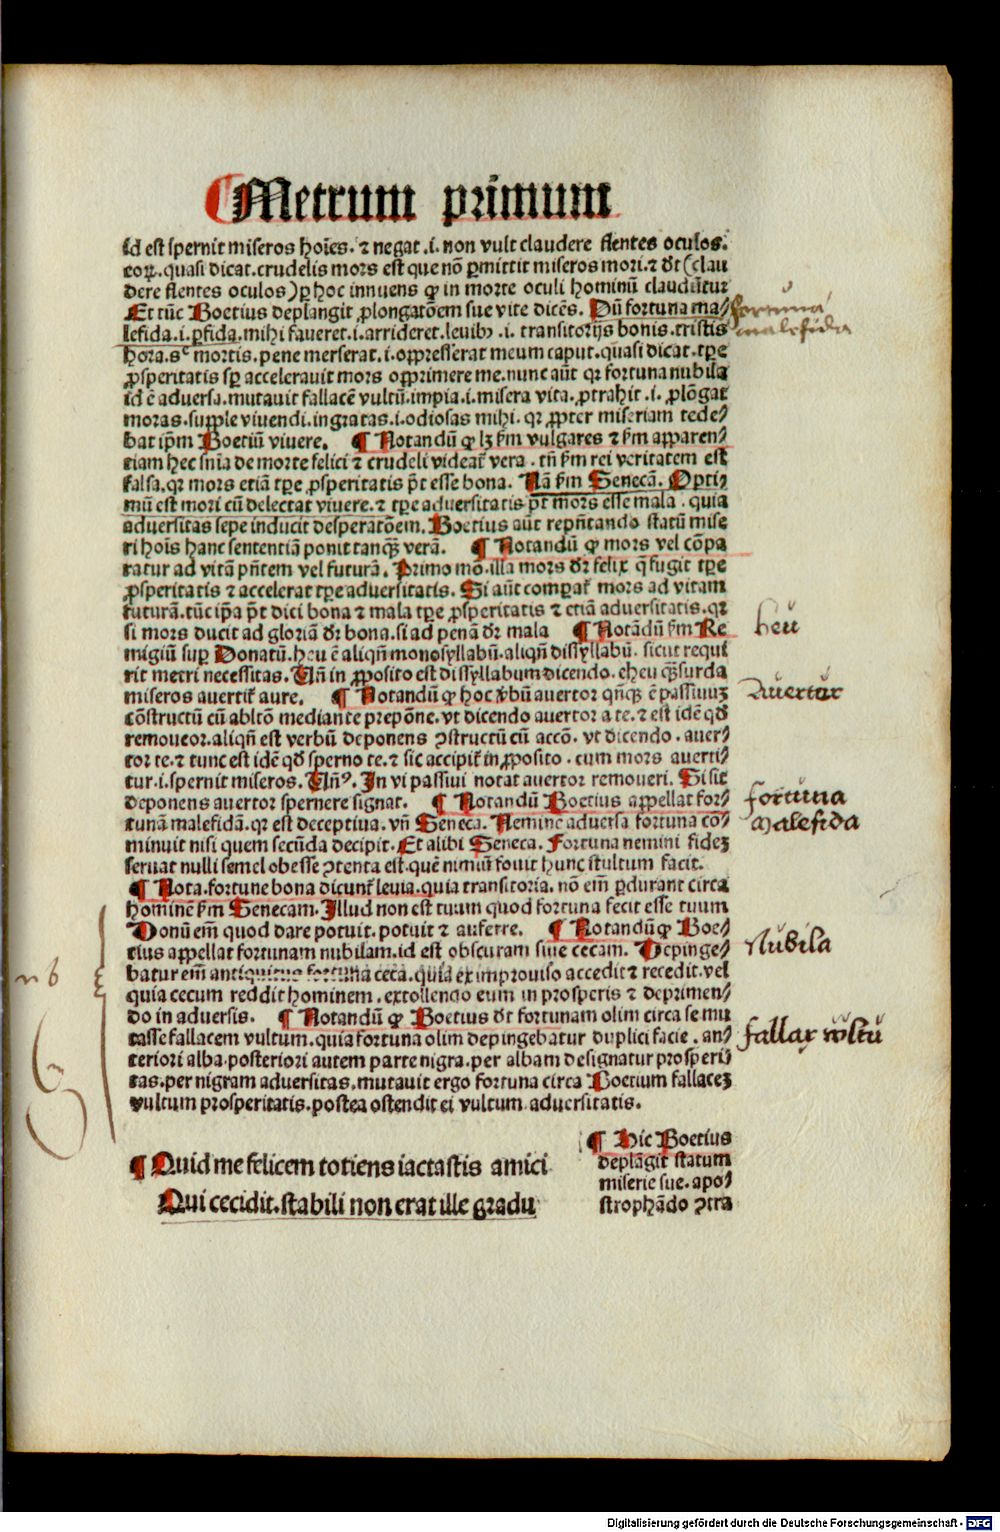 ¶ Metrum primum
id est spernit miseros hoīes. ⁊ negat .i. non vult claudere flentes oculos.
eoꝝ. quasi dicat. crudelis mors est que nō ꝑmittit miseros mori. ⁊ dt (clau
dere flentes oculos) ꝑ hoc innuens ꝙ in morte oculi hominū claudūtur
Et tūc Boetius deplangit ꝓlongatōem sue vite dicēs. Dū fortuna ma⸗
lefida .i. ꝑfida. mihi faveret .i. arrideret. leuibꝰ .i. transitorijs bonis. tristis
hora. sꝫ mortis. pene merserat .i. oppresserat meum caput. quasi dicat. tꝑe
ꝓsperitatis sꝑ acceleravit mors opprimere me. nunc aūt qꝛ fortuna nubila
id ē adversa. mutavit fallacē vultū. impia .i. misera vita. ꝓtrahit .i. ꝓlōgat
moras. supple vivendi. ingratas .i. odiosas mihi. qꝛ ꝓpter miseriam tede⸗
bat ipm Boetiū vivere. ¶ Notandū ꝙ lꝫ ẜm vulgares ⁊ ẜm apparen⸗
tiam hec snīa de morte felici ⁊ crudeli videat̄ vera. tn̄ ẜm rei veritatem est
falsa. qꝛ mors etiā tꝑe ꝓsperitatis pt̄ esse bona. Nā ẜm Senecā. Opti⸗
mū est mori cū delectat vivere. ⁊ tꝑe adversitatis pt̄ mors esse mala. quia
adversitas sepe inducit desperatōem. Boetius aūt repn̄tando statū mise
ri hoīs hanc sententiā ponit tanqꝫ verā. ¶ Notandū ꝙ mors vel cōpa
ratur ad vitā pn̄tem vel futurā. Primo mō. illa mors dꝛ felix q̄ fugit tꝑe
ꝓsperitatis ⁊ accelerat tꝑe adversitatis. Si aūt comparat̄ mors ad vitam
futurā. tūc ipa pt̄ dici bona ⁊ mala tꝑe ꝓsperitatis ⁊ etiā adversitatis. qꝛ
si mors ducit ad gloriā dꝛ bona. si ad penā dꝛ mala ¶ Notādū ẜm Re
migiū suꝑ Donatū. heu ē aliqn̄ monosyllabū. aliqn̄ dissyllabū. sicut requi
rit metri necessitas. Un̄ in ꝓposito est dissyllabum dicendo. eheu qꝫ surda
miseros avertit̄ aure. ¶ Notandū ꝙ hoc v̄bū avertor qn̄qꝫ ē passivuꝫ
cōstructū cū abltō mediante prepōne. vt dicendo avertor a te. ⁊ est idē qd̄
removeor. aliqn̄ est verbū deponens ꝯstructū cū accō. vt dicendo. aver⸗
tor te. ⁊ tunc est idē qd̄ sperno te. ⁊ sic accipit̄ in ꝓposito. cum mors averti⸗
tur .i. spernit miseros. Unꝰ. In vi passivi notat avertor removeri. Si sit
deponens avertor spernere signat. ¶ Notandū Boetius appellat for⸗
tunā malefidā. qꝛ est deceptiva. vn̄ Seneca. Neminē adversa fortuna cō⸗
minuit nisi quem secūda decipit. Et alibi Seneca. Fortuna nemini fideꝫ
servat nulli semel obesse ꝯtenta est. quē nimiū fovit hunc stultum facit.
¶ Nota. fortune bona dicunt̄ levia. quia transitoria. nō em̄ ꝑdurant circa
hominē ẜm Senecam. Illud non est tuum quod fortuna fecit esse tuum
Donū em̄ quod dare potuit. potuit ⁊ auferre. ¶ Notandū ꝙ Boe⸗
tius appellat fortunam nubilam. id est obscuram sive cecam. Depinge⸗
batur em̄ antiquitus fortuna ceca. quia ex improviso accedit ⁊ recedit. vel
quia cecum reddit hominem. extollendo eum in prosperis ⁊ deprimen⸗
do in adversis. ¶ Notandū ꝙ Boetius dt fortunam olim circa se mu
tasse fallacem vultum. quia fortuna olim depingebatur duplici facie. an⸗
teriori alba. posteriori autem parte nigra. per albam designatur prosperi⸗
tas. per nigram adversitas. mutavit ergo fortuna circa Boetium fallaceꝫ
vultum prosperitatis. postea ostendit ei vultum adversitatis.
¶ Quid me felicem totiens iactastis amici
Qui cecidit. stabili non erat ille gradu
¶ Hic Boetius
deplāgit statum
miserie sue. apo⸗
strophādo ꝯtra
fortuna
malefida
heu
Avertor
fortuna
Malefida
Nubila
fallax vultu
nb
Digitalisierung gefördert durch die Deutsche Forschungsgemeinschaft - DFG